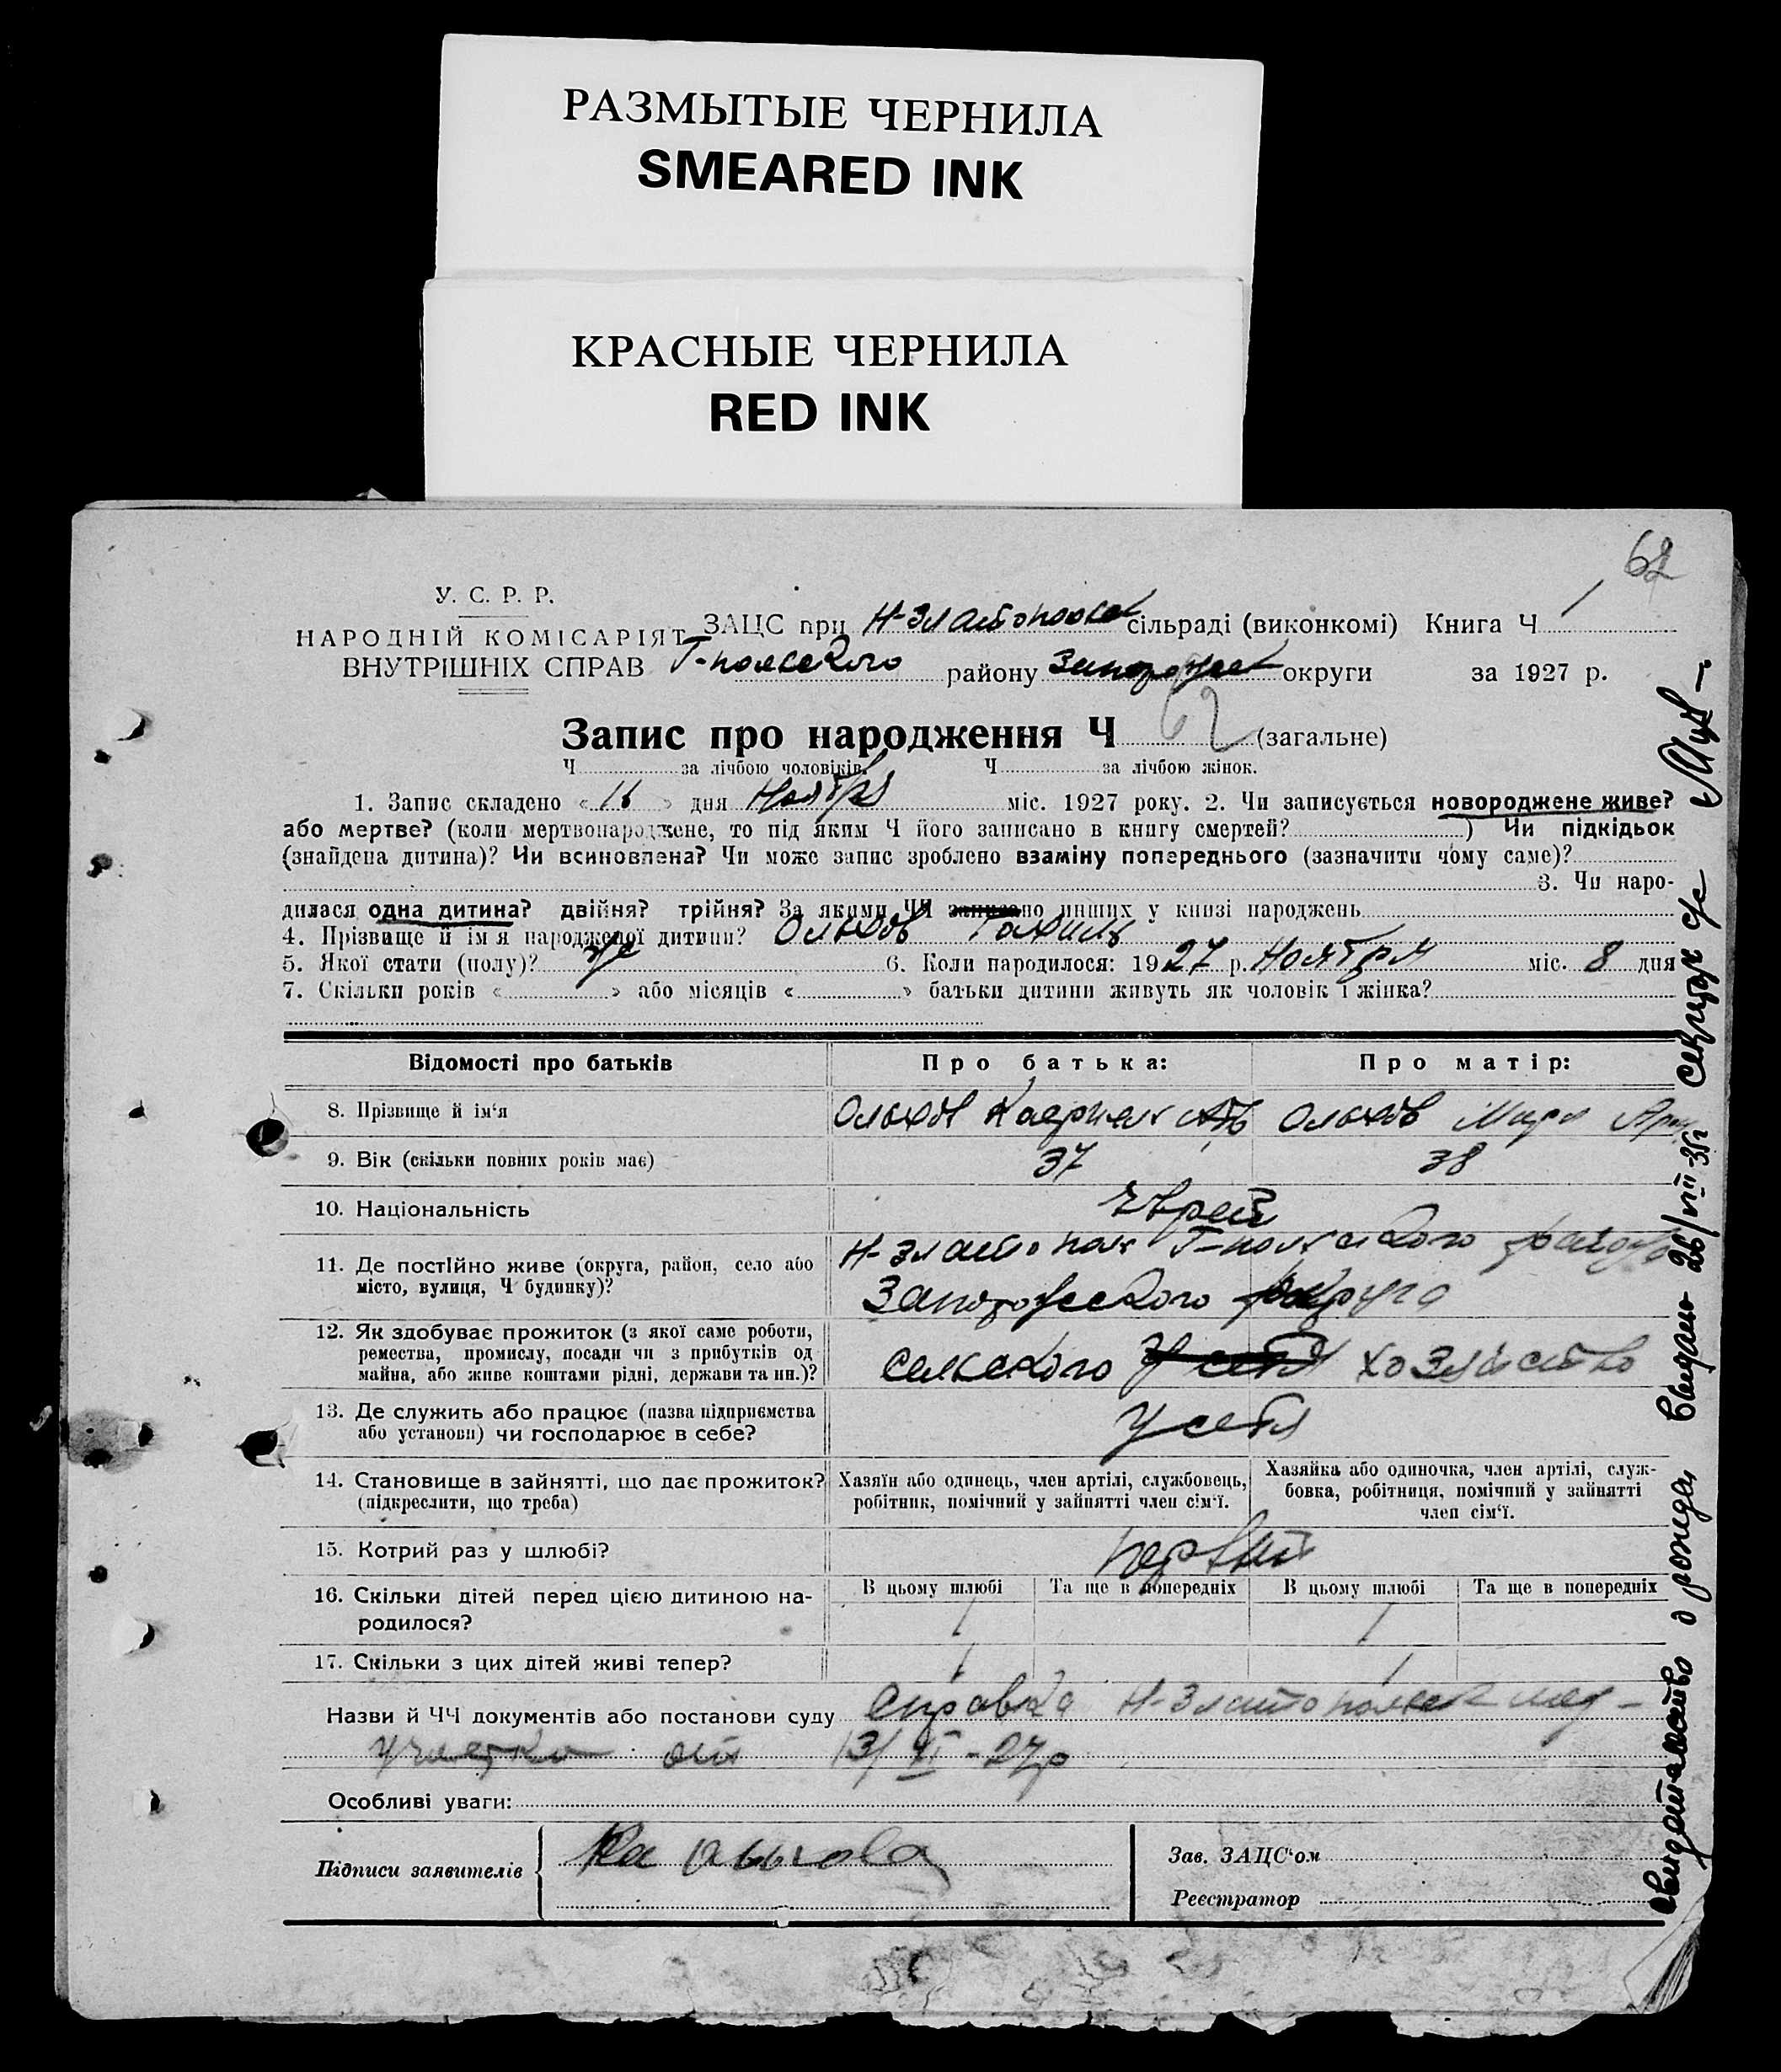 РАЗМЫТЫЕ ЧЕРНИЛА
SMEARED INK
КРАСНЫЕ ЧЕРНИЛА
RED INK
62
У. С. Р. Р.
НАРОДНІЙ КОМІСАРІЯТ
ВНУТРІШНІХ СПРАВ
ЗАЦС при Н-Златопольск сільраді (виконкомі) Книга Ч 1
Г-польского району Запорожск округи за 1927 р.
Запис про народження Ч 62 (загальне)
Ч за лічбою чоловіків. Ч за лічбою жінок.
1. Запис складено « 16 » дня Ноября міс. 1927 року. 2. Чи записується новороджене живе?
або мертве? (коли мертвонароджене, то під яким Ч його записано в книгу смертей? ) Чи підкідьок
(знайдена дитина)? Чи всиновлена? Чи може запис зроблено взаміну попереднього (зазначити чому саме)?
3. Чи наро-
дилася одна дитина? двійня? трійня? За якими ЧЧ записано инших у книзі народжень
4. Прізвище й ім'я народженої дитини? Ольхов
5. Якої стати (полу)? же 6. Коли народилося: 1927 р. Ноября міс. 8 дня
7. Скільки років « » або місяців « » батьки дитини живуть як чоловік і жінка?
Відомості про батьків Про батька: Про матір:
8. Прізвище й ім'я Ольхов Ольхов
9. Вік (скільки повних років має) 37 38
10. Національність Еврей
11. Де постійно живе (округа, район, село або
місто, вулиця, Ч будинку)?
Н-Златополь Г-польского района
Запорожского округа
12. Як здобуває прожиток (з якої саме роботи,
ремества, промислу, посади чи з прибутків од
майна, або живе коштами рідні, держави та ин.)?
сельского у себя хозяйство
13. Де служить або працює (назва підприємства
або установи) чи господарює в себе?
У себя
14. Становище в зайнятті, що дає прожиток?
(підкреслити, що треба)
Хазяїн або одинець, член артілі, службовець,
робітник, помічний у зайнятті член сім'ї.
Хазяйка або одиночка, член артілі, служ-
бовка, робітниця, помічний у зайнятті
член сім'ї.
15. Котрий раз у шлюбі? первый
16. Скільки дітей перед цією дитиною на-
родилося?
В цьому шлюбі Та ще в попередніх В цьому шлюбі Та ще в попередніх
1 1
17. Скільки з цих дітей живі тепер? 1 1
Назви й ЧЧ документів або постанови суду справка Н-Златопольск мед-
участка от 13/XI-27р
Особливі уваги:
Підписи заявителів
Зав. ЗАЦС'ом
Реєстратор
свидетельство о рожден выдано 26/VIII-35г Секретарь с/с